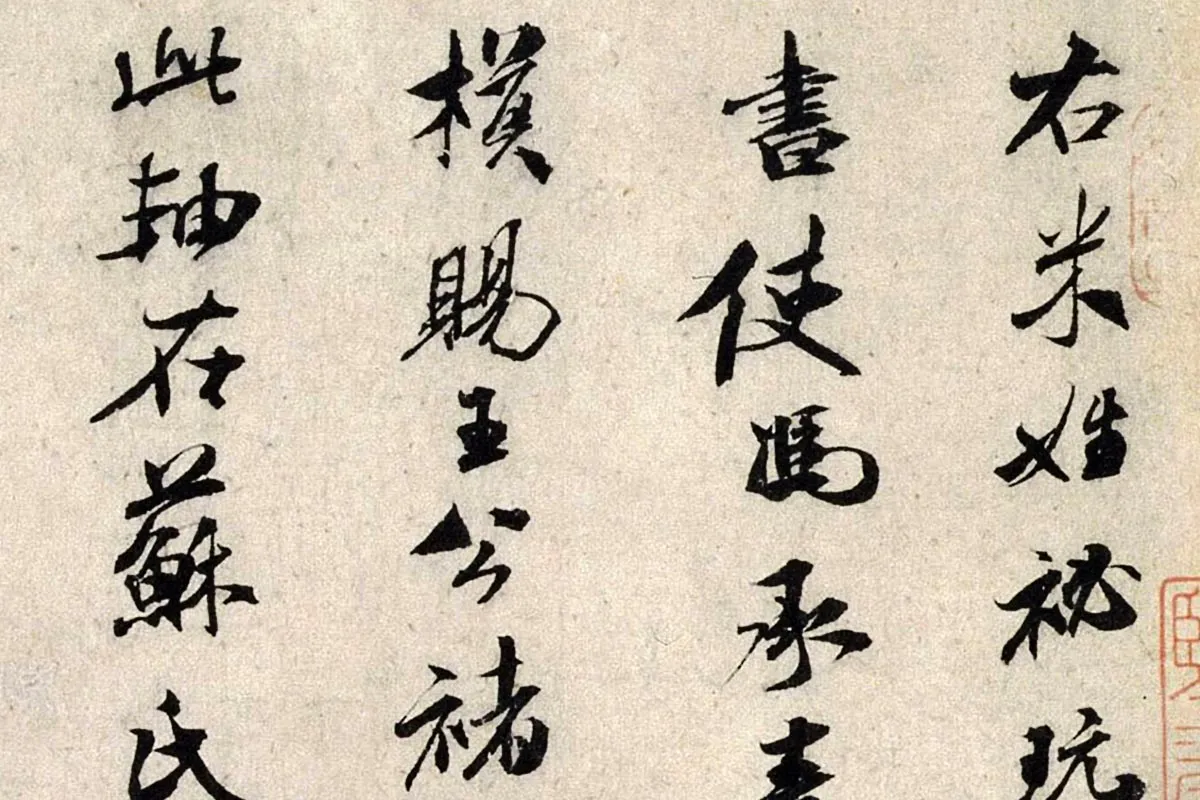 右米姓秘玩
書使馮承素
模賜王公褚
此軸在蘇氏